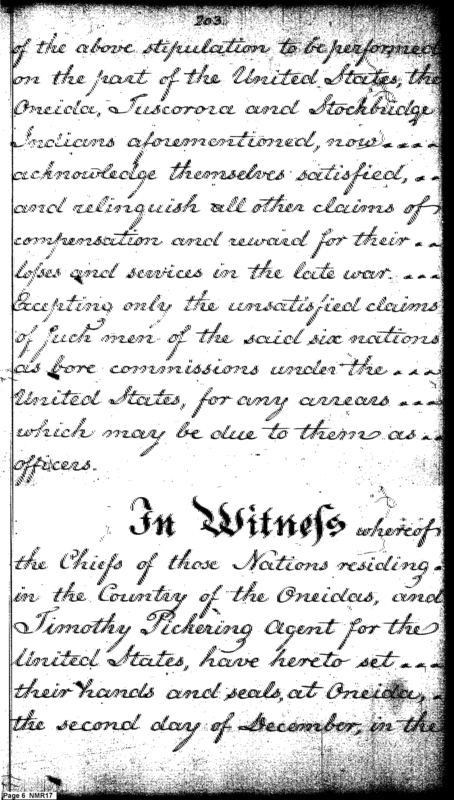 203.
of the above stipulation to be performed
on the part of the United States, the
Oneida, Tuscorora and Stockbridge
Indians aforementioned, now
acknowledge themselves satisfied,
and relinquish all other claims of
compensation and reward for their
loſses and services in the late war.
Excepting only the unsatisfied claims
of ſuch men of the said six nations
as bore commissions under the
United States, for any arrears
which may be due to them as
officers.
In Witneſs whereof
the Chiefs of those Nations residing
in the Country of the Oneidas, and
Timothy Pickering Agent for the
United States, have hereto set
their hands and seals, at Oneida,
the second day of December, in the
Page 6 NMR17